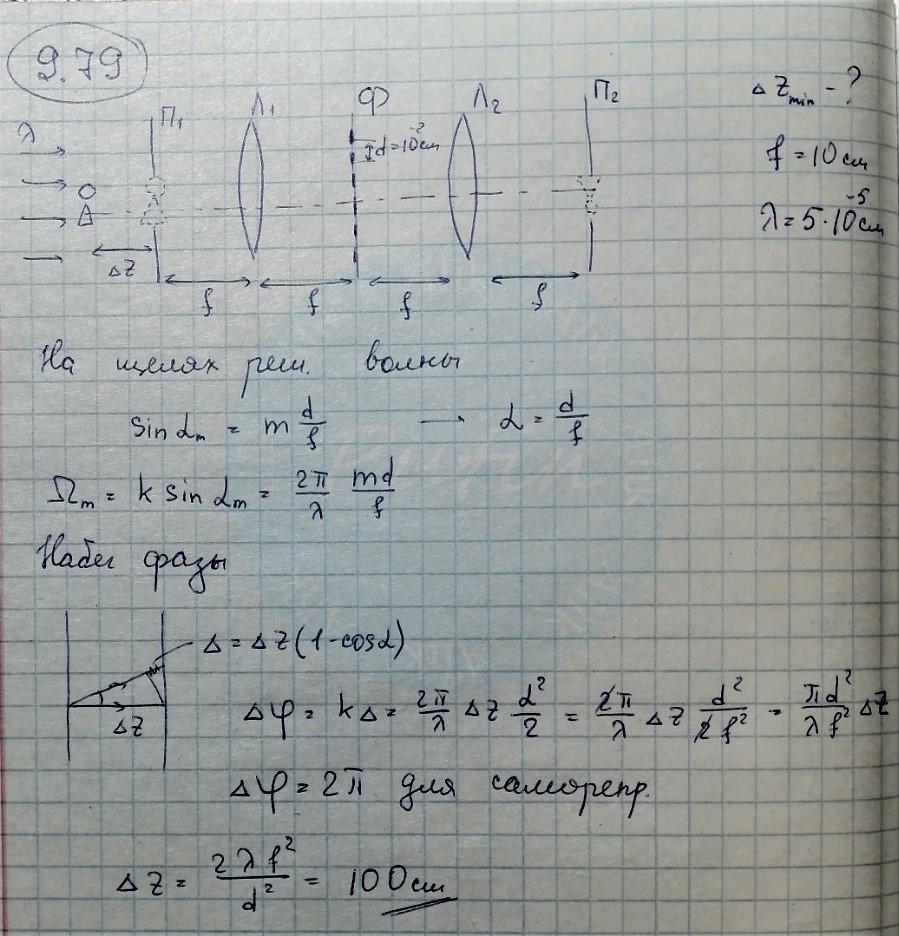 9.79
λ
П₁
Л₁
Ф
d = 10⁻² см
Л₂
П₂
ΔZ
f
f
f
f
ΔZ_min - ?
f = 10 см
λ = 5·10⁻⁵ см
На щелях реш. волны
sin α_m = m d/f → α = d/f
Ω_m = k sin α_m = 2π/λ md/f
Набег фазы
Δ = ΔZ(1-cosα)
ΔZ
Δφ = kΔ = 2π/λ ΔZ α²/2 = 2π/λ ΔZ d²/2f² = πd²/λf² ΔZ
Δφ = 2π для саморепр.
ΔZ = 2λf²/d² = 100 см